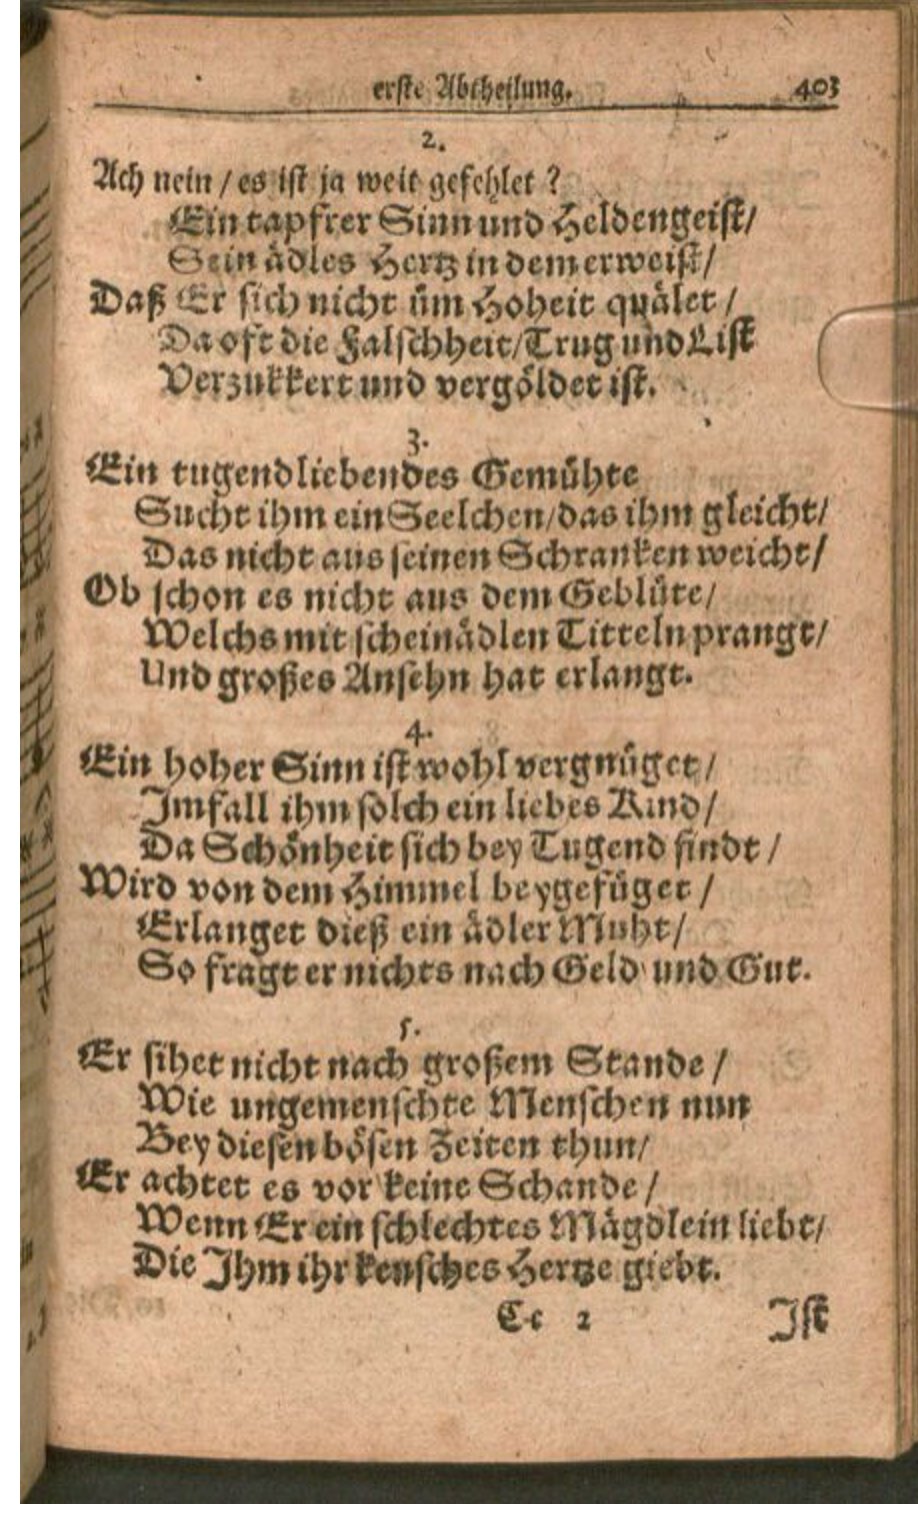 erste Abtheilung. 403
2.
Ach nein / es ist ja weit gefehlet ?
Ein tapfrer Sinn und Heldengeist/
Sein ädles Hertz in dem erweist/
Daß Er sich nicht üm Hoheit quälet /
Da oft die Falschheit/Trug und List
Verzukkert und vergöldet ist.
3.
Ein tugendliebendes Gemühte
Sucht ihm ein Seelchen/das ihm gleicht/
Das nicht aus seinen Schranken weicht/
Ob schon es nicht aus dem Geblüte/
Welchs mit scheinädlen Titteln prangt/
Und großes Ansehn hat erlangt.
4.
Ein hoher Sinn ist wohl vergnüget /
Imfall ihm solch ein liebes Kind /
Da Schönheit sich bey Tugend findt /
Wird von dem Himmel beygefüget /
Erlanget dieß ein ädler Muht/
So fragt er nichts nach Geld und Gut.
5.
Er sihet nicht nach großem Stande /
Wie ungemenschte Menschen nun
Bey diesen bösen Zeiten thun/
Er achtet es vor keine Schande /
Wenn Er ein schlechtes Mägdlein liebt/
Die Ihm ihr keusches Hertze giebt.
Cc 2 Ist